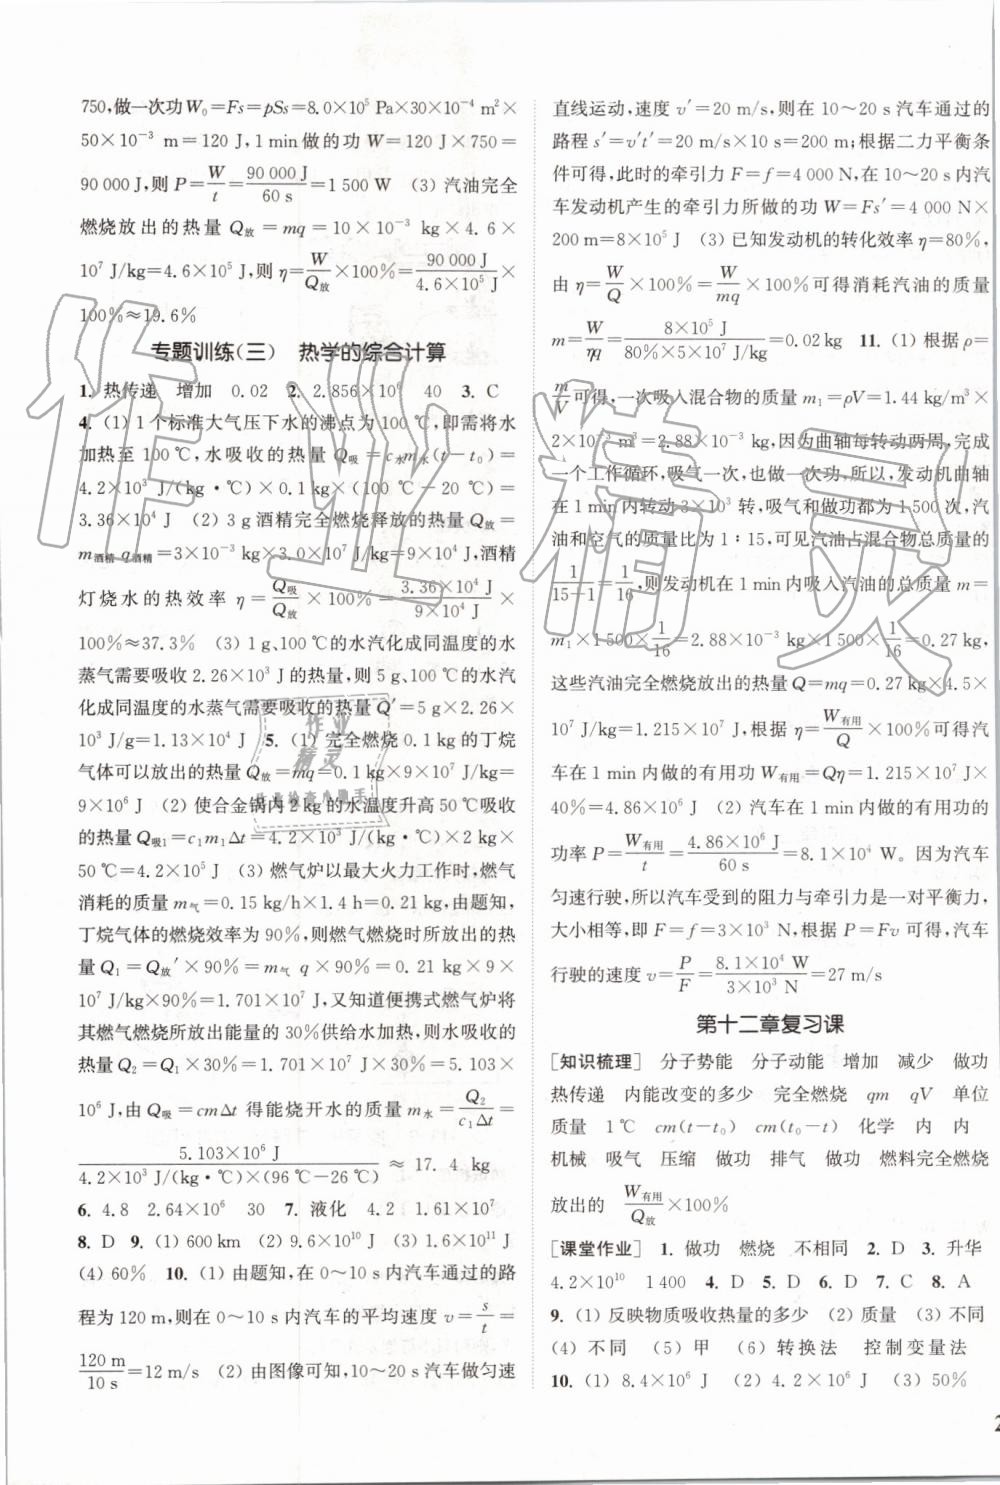 750,做一次功W₀=Fs=pSs=8.0×10⁵ Pa×30×10⁻⁴ m²×
50×10⁻³ m=120 J,1 min 做的功 W=120 J×750=
90 000 J,则 P=W/t=90 000 J/60 s=1 500 W (3) 汽油完全
燃烧放出的热量 Q放=mq=10×10⁻³ kg×4.6×
10⁷ J/kg=4.6×10⁵ J,则 η=W/Q放×100%=90 000 J/4.6×10⁵ J×
100%≈19.6%
专题训练(三) 热学的综合计算
1. 热传递 增加 0.02 2. 2.856×10⁶ 40 3. C
4. (1) 1个标准大气压下水的沸点为100 ℃,即需将水
加热至100 ℃,水吸收的热量 Q吸=c水m水(t-t₀)=
4.2×10³ J/(kg·℃)×0.1 kg×(100 ℃-20 ℃)=
3.36×10⁴ J (2) 3 g酒精完全燃烧释放的热量 Q放=
m酒精 q酒精=3×10⁻³ kg×3.0×10⁷ J/kg=9×10⁴ J,酒精
灯烧水的热效率 η=Q吸/Q放×100%=3.36×10⁴ J/9×10⁴ J×
100%≈37.3% (3) 1 g、100 ℃的水汽化成同温度的水
蒸气需要吸收2.26×10³ J的热量,则 5 g、100 ℃的水汽
化成同温度的水蒸气需要吸收的热量Q′=5 g×2.26×
10³ J/g=1.13×10⁴ J 5. (1) 完全燃烧0.1 kg的丁烷
气体可以放出的热量 Q放=mq=0.1 kg×9×10⁷ J/kg=
9×10⁶ J (2) 使合金锅内2 kg的水温度升高50 ℃吸收
的热量Q吸1=c₁m₁Δt=4.2×10³ J/(kg·℃)×2 kg×
50 ℃=4.2×10⁵ J (3) 燃气炉以最大火力工作时,燃气
消耗的质量 m气=0.15 kg/h×1.4 h=0.21 kg,由题知,
丁烷气体的燃烧效率为90%,则燃气燃烧时所放出的热
量 Q₁=Q放′×90%=m气 q×90%=0.21 kg×9×
10⁷ J/kg×90%=1.701×10⁷ J,又知道便携式燃气炉将
其燃气燃烧所放出能量的30%供给水加热,则水吸收的
热量Q₂=Q₁×30%=1.701×10⁷ J×30%=5.103×
10⁶ J,由 Q吸=cmΔt 得能烧开水的质量 m水=Q₂/c₁Δt=
5.103×10⁶ J/4.2×10³ J/(kg·℃)×(96 ℃-26 ℃)≈17.4 kg
6. 4.8 2.64×10⁶ 30 7. 液化 4.2 1.61×10⁷
8. D 9. (1) 600 km (2) 9.6×10¹⁰ J (3) 1.6×10¹¹ J
(4) 60% 10. (1) 由题知,在0～10 s内汽车通过的路
程为120 m,这样在0～10 s内汽车的平均速度 v=s/t=
120 m/10 s=12 m/s (2) 由图像可知,10～20 s汽车做匀速
直线运动,速度 v′=20 m/s,则在10～20 s汽车通过的
路程 s′=v′t′=20 m/s×10 s=200 m;根据二力平衡条
件可得,此时的牵引力 F=f=4 000 N,在10～20 s内汽
车发动机产生的牵引力所做的功 W=Fs′=4 000 N×
200 m=8×10⁵ J (3) 已知发动机的转化效率η=80%,
由 η=W/Q×100%=W/mq×100%可得消耗汽油的质量
m=W/ηq=8×10⁵ J/80%×5×10⁷ J/kg=0.02 kg 11. (1) 根据ρ=
m/V可得,一次吸入混合物的质量 m₁=ρV=1.44 kg/m³×
2×10⁻³ m³=2.88×10⁻³ kg,因为曲轴每转动两周,完成
一个工作循环,吸气一次,也做一次功,所以,发动机曲轴
在1 min内转动3×10³ 转,吸气和做功都为1 500次,汽
油和空气的质量比为1∶15,可见汽油占混合物总质量的
1/15-1=1/16,则发动机在1 min内吸入汽油的总质量 m=
m₁×1 500×1/16=2.88×10⁻³ kg×1 500×1/16=0.27 kg,
这些汽油完全燃烧放出的热量Q=mq=0.27 kg×4.5×
10⁷ J/kg=1.215×10⁷ J,根据 η=W有用/Q×100%可得汽
车在1 min内做的有用功 W有用=Qη=1.215×10⁷ J×
40%=4.86×10⁶ J (2) 汽车在1 min内做的有用功的
功率 P=W有用/t=4.86×10⁶ J/60 s=8.1×10⁴ W。因为汽车
匀速行驶,所以汽车受到的阻力与牵引力是一对平衡力,
大小相等,即 F=f=3×10³ N,根据 P=Fv 可得,汽车
行驶的速度 v=P/F=8.1×10⁴ W/3×10³ N=27 m/s
第十二章复习课
[知识梳理] 分子势能 分子动能 增加 减少 做功
热传递 内能改变的多少 完全燃烧 qm qV 单位
质量 1 ℃ cm(t-t₀) cm(t₀-t) 化学 内 内
机械 吸气 压缩 做功 排气 做功 燃料完全燃烧
放出的 W有用/Q放×100%
[课堂作业] 1. 做功 燃烧 不相同 2. D 3. 升华
4.2×10¹⁰ 1 400 4. D 5. D 6. D 7. C 8. A
9. (1) 反映物质吸收热量的多少 (2) 质量 (3) 不同
(4) 不同 (5) 甲 (6) 转换法 控制变量法
10. (1) 8.4×10⁶ J (2) 4.2×10⁶ J (3) 50%
作业精灵
作业
精灵
作业检查小助手